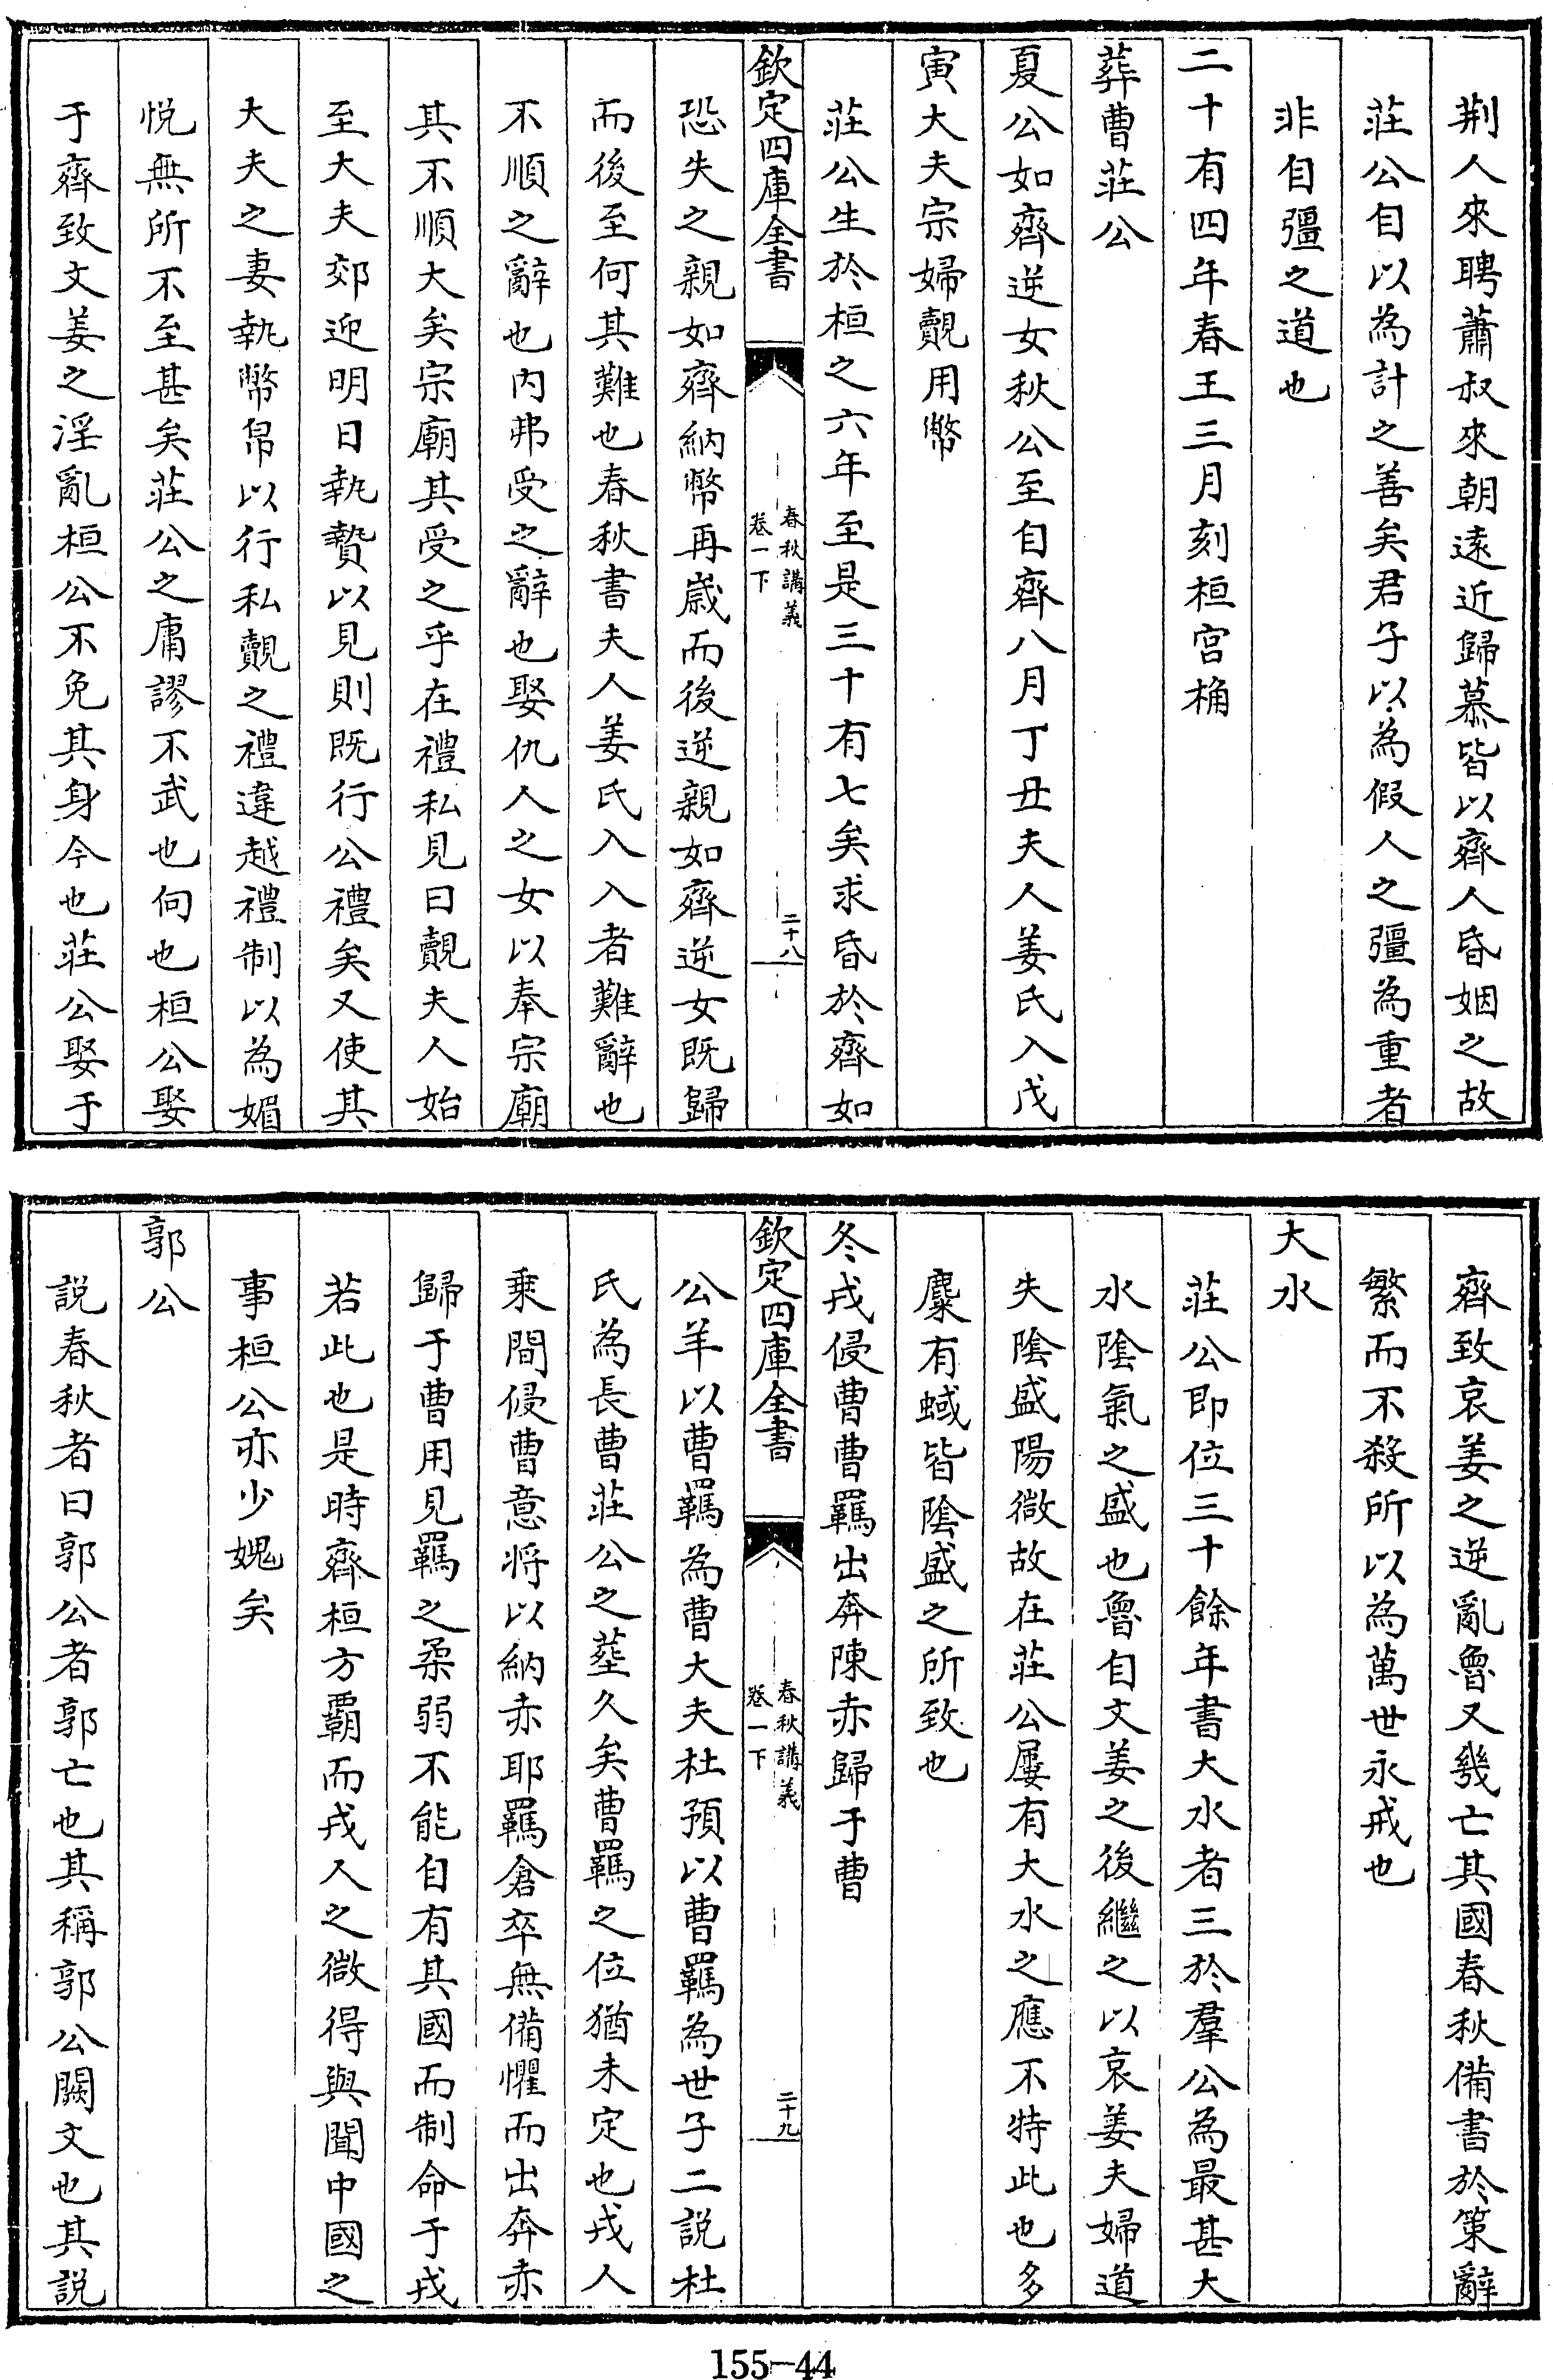 荆人來聘蕭叔來朝遠近歸慕皆以齊人昏姻之故
莊公自以為計之善矣君子以為假人之彊為重者
非自彊之道也
二十有四年春王三月刻桓宫桷
葬曹莊公
夏公如齊逆女秋公至自齊八月丁丑夫人姜氏入戊
寅大夫宗婦覿用幣
莊公生於桓之六年至是三十有七矣求昏於齊如
欽定四庫全書
春秋講義
卷一下
二十八
恐失之親如齊納幣再嵗而後逆親如齊逆女既歸
而後至何其難也春秋書夫人姜氏入入者難辭也
不順之辭也内弗受之辭也娶仇人之女以奉宗廟
其不順大矣宗廟其受之乎在禮私見曰覿夫人始
至大夫郊迎明日執贄以見則既行公禮矣又使其
大夫之妻執幣帛以行私覿之禮違越禮制以為媚
悦無所不至甚矣莊公之庸謬不武也何也桓公娶
于齊致文姜之淫亂桓公不免其身今也莊公娶于
齊致哀姜之逆亂魯又㡬亡其國春秋備書於策辭
繁而不殺所以為萬世永戒也
大水
莊公即位三十餘年書大水者三於羣公為最甚大
水陰氣之盛也魯自文姜之後繼之以哀姜夫婦道
失陰盛陽微故在莊公屢有大水之應不特此也多
麋有蜮皆陰盛之所致也
冬戎侵曹曹羈出奔陳赤歸于曹
欽定四庫全書
春秋講義
卷一下
二十九
公羊以曹羈為曹大夫杜預以曹羈為世子二說杜
氏為長曹莊公之塟久矣曹羈之位猶未定也戎人
乗間侵曹意将以納赤耶羈倉卒無備懼而出奔赤
歸于曹用見羈之柔弱不能自有其國而制命于戎
若此也是時齊桓方覇而戎人之微得與聞中國之
事桓公亦少媿矣
郭公
説春秋者曰郭公者郭亡也其稱郭公闕文也其説
155-44